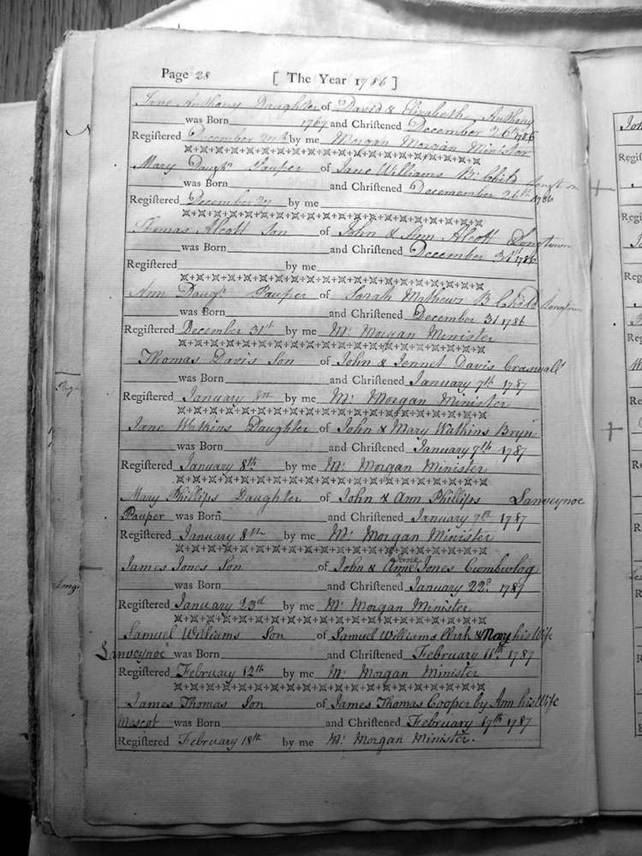 Page 28 [ The Year 1786 ]
Jane Anthony Daughter of David & Elizabeth Anthony
was Born 1767 and Christened December 26th 1786
Registered December by me Morgan Morgan Minister
Mary Daugtr Pauper of Jane Williams B. Child Longtown
was Born and Christened Decemember 26th 1786
Registered December 27 by me
Thomas Alcott Son of John & Ann Alcott Longtown
was Born and Christened December 31st 1786
Registered by me
Ann Daugtr Pauper of Sarah Mathews B Child Longtown
was Born and Christened December 31 1786
Registered December 31st by me Mr Morgan Minister
Thomas Davis Son of John & Jennet Davis Craswall
was Born and Christened January 7th 1787
Registered January 8th by me Mr Morgan Minister
Jane Watkins Daughter of John & Mary Watkins Bryn
was Born and Christened January 7th 1787
Registered January 8th by me Mr Morgan Minister
Mary Phillips Daughter of John & Ann Phillips Lanveynoe
Pauper was Born and Christened January 7th 1787
Registered January 8th by me Mr Morgan Minister
James Jones Son of John & Jones
was Born and Christened January 22d 1787
Registered January 23rd by me Mr Morgan Minister
Samuel Williams Son of Samuel Williams Clerk & Mary his Wife
Lanveynoe was Born and Christened February 11th 1787
Registered February 12th by me Mr Morgan Minister
James Thomas Son of James Thomas Cooper by Ann his Wife
was Born and Christened February 17th 1787
Registered February 18th by me Mr Morgan Minister.